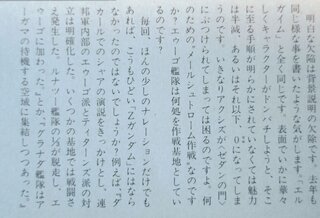 明白な欠陥は背景説明の欠除です。去年も
同じ様な事を書いたような気がします。「エル
ガイム」と全く同じです。表面でいかに華々
しくキャラクターがドンパチしようと、そこ
に至る手順が明らかにされていなくては魅力
は半減、あるいはそれ以下、になってしまう
のです。いきなりアクシズが〈ゼダの門〉
にぶつけられてしまっては困るのですよ、何
のためのメールシュトローム作戦なのです
か？エゥーゴ艦隊は何処を作戦基地としてい
るのです？
毎回、ほんの少しのナレーションだけでも
あれば、こうもひどい「Zガンダム」にはなら
なかったのではないでしょうか？例えば、“ダ
カールでのシャアの演説をきっかけとし、連
邦軍内部のエゥーゴ派とティターンズ派の対
立は明確化した。いくつかの基地では戦闘さ
え発生した。ルナツー艦隊の⅓が脱走し、エ
ゥーゴに加わった。”とか、“グラナダ艦隊はア
ーガマの待機する空域に集結しつつあった。”